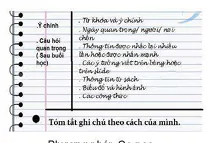 . Ý chính
. Câu hỏi
quan trọng
( Sau buổi
học)
. Từ khóa và ý chính
. Ngày quan trọng/ người/ nơi
chốn
. Thông tin được nhắc lại nhiều
lần hoặc được nhấn mạnh
. Các ý tưởng viết trên bảng hoặc
trên slide
. Thông tin từ sách
. Biểu đồ và hình ảnh
. Các công thức
Tóm tắt ghi chú theo cách của mình.